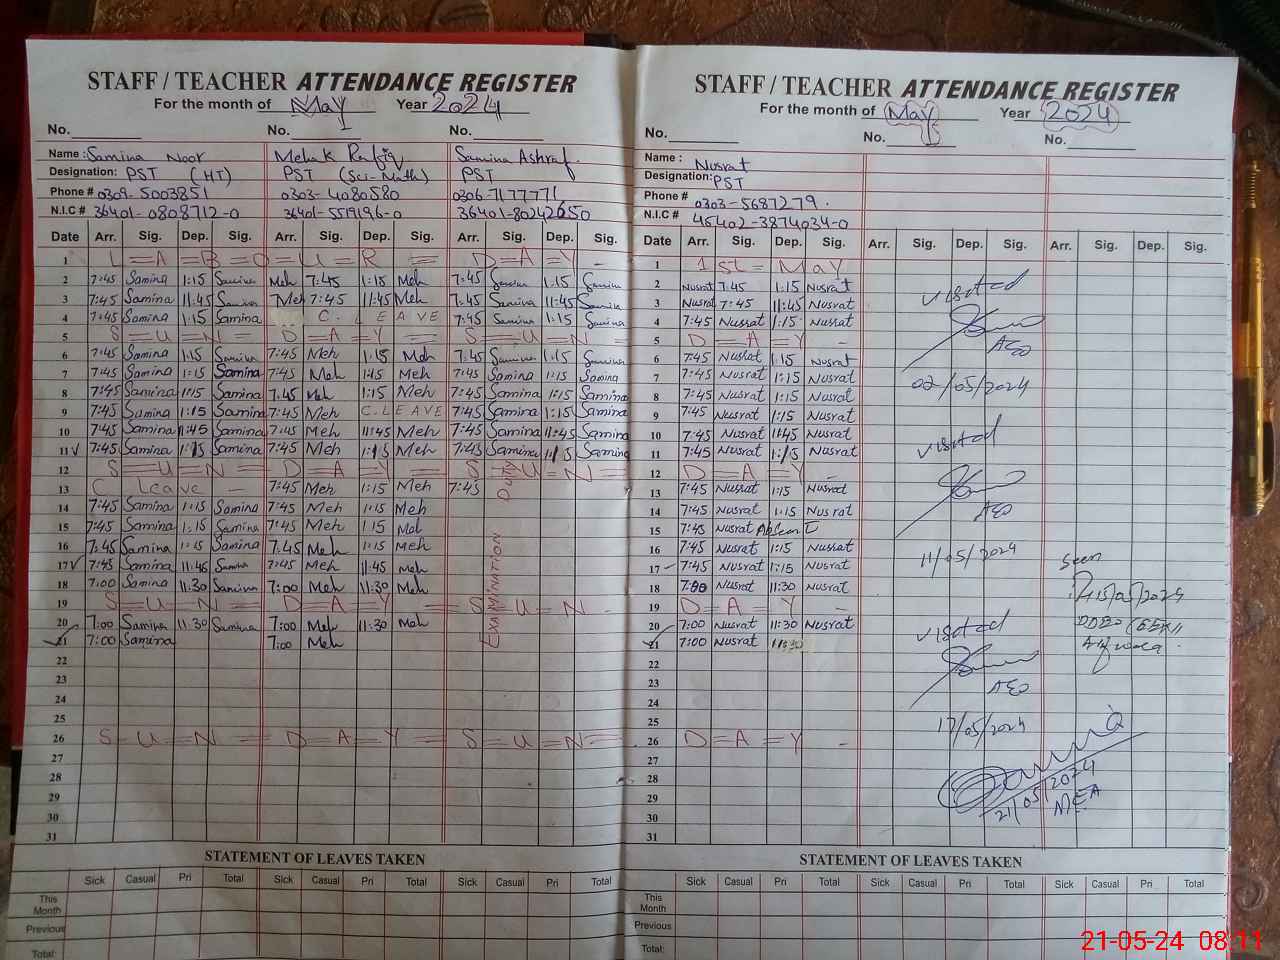 STAFF / TEACHER ATTENDANCE REGISTER
For the month of May Year 2024
No. No. No.
Name : Samina Noor Mehak Rafiq Samina Ashraf.
Designation: PST (HT) PST (Sci-Math) PST
Phone # 0309-5003851 0303-4080580 0306-7177771
N.I.C # 36401-0808712-0 36401-5519196-0 36401-80242650
Date Arr. Sig. Dep. Sig. Arr. Sig. Dep. Sig. Arr. Sig. Dep. Sig.
1 L = A = B = O = U = R = D = A = Y -
2 7:45 Samina 1:15 Samina Meh 7:45 1:15 Meh 7:45 Samina 1:15 Samina
3 7:45 Samina 11:45 Samina Meh 7:45 11:45 Meh 7:45 Samina 11:45 Samina
4 7:45 Samina 1:15 Samina C. LEAVE 7:45 Samina 1:15 Samina
5 S = U = N = D = A = Y = S = U = N =
6 7:45 Samina 1:15 Samina 7:45 Meh 1:15 Meh 7:45 Samina 1:15 Samina
7 7:45 Samina 1:15 Samina 7:45 Meh 1:15 Meh 7:45 Samina 1:15 Samina
8 7:45 Samina 1:15 Samina 7:45 Meh 1:15 Meh 7:45 Samina 1:15 Samina
9 7:45 Samina 1:15 Samina 7:45 Meh C.LEAVE 7:45 Samina 1:15 Samina
10 7:45 Samina 11:45 Samina 7:45 Meh 11:45 Meh 7:45 Samina 11:45 Samina
11 ✓ 7:45 Samina 1:15 Samina 7:45 Meh 1:15 Meh 7:45 Samina 1:15 Samina
12 S = U = N = D = A = Y = S = U = N =
13 C Leave - 7:45 Meh 1:15 Meh 7:45
14 7:45 Samina 1:15 Samina 7:45 Meh 1:15 Meh
15 7:45 Samina 1:15 Samina 7:45 Meh 1:15 Meh
16 7:45 Samina 1:15 Samina 7:45 Meh 1:15 Meh
17 ✓ 7:45 Samina 11:45 Samina 7:45 Meh 11:45 Meh
18 7:00 Samina 11:30 Samina 7:00 Meh 11:30 Meh
19 S = U = N = D = A = Y = S = U = N -
20 7:00 Samina 11:30 Samina 7:00 Meh 11:30 Meh
21 ✓ 7:00 Samina 7:00 Meh
EXAMINATION DUTY
22
23
24
25
26 S = U = N = D = A = Y = S = U = N =
27
28
29
30
31
STATEMENT OF LEAVES TAKEN
Sick Casual Pri Total Sick Casual Pri Total Sick Casual Pri Total
This Month
Previous
Total:
STAFF / TEACHER ATTENDANCE REGISTER
For the month of May Year 2024
No. No. No.
Name : Nusrat
Designation: PST
Phone # 0303-5687279.
N.I.C # 45402-3874034-0
Date Arr. Sig. Dep. Sig. Arr. Sig. Dep. Sig. Arr. Sig. Dep. Sig.
1 1st = May
2 Nusrat 7:45 1:15 Nusrat
3 Nusrat 7:45 11:45 Nusrat
4 7:45 Nusrat 1:15 Nusrat
5 D = A = Y -
6 7:45 Nusrat 1:15 Nusrat
7 7:45 Nusrat 1:15 Nusrat
8 7:45 Nusrat 1:15 Nusrat
9 7:45 Nusrat 1:15 Nusrat
10 7:45 Nusrat 11:45 Nusrat
11 7:45 Nusrat 1:15 Nusrat
12 D = A = Y -
13 7:45 Nusrat 1:15 Nusrat
14 7:45 Nusrat 1:15 Nusrat
15 7:45 Nusrat Absent
16 7:45 Nusrat 1:15 Nusrat
17 7:45 Nusrat 1:15 Nusrat
18 7:00 Nusrat 11:30 Nusrat
19 D = A = Y -
20 7:00 Nusrat 11:30 Nusrat
21 ✓ 7:00 Nusrat 11:30
22
23
24
25
26 D = A = Y -
27
28
29
30
31
visited
AEO
02/05/2024
visited
AEO
11/05/2024
visited
AEO
17/05/2024
Seen
15/05/2024
21/05/2024
MEA
STATEMENT OF LEAVES TAKEN
Sick Casual Pri Total Sick Casual Pri Total Sick Casual Pri Total
This Month
Previous
Total:
21-05-24 08:11